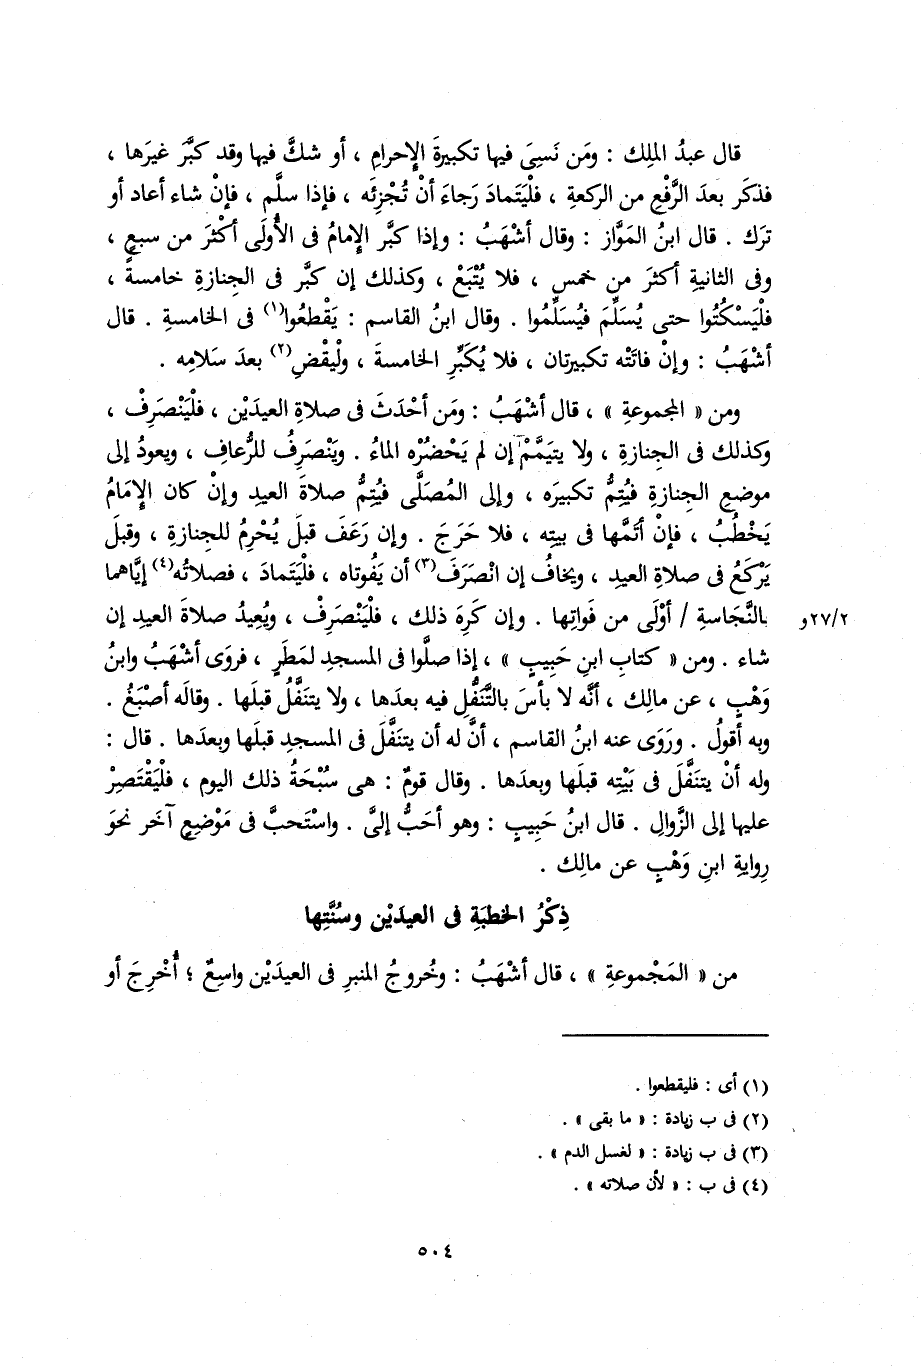 قال عبدُ الملِك : ومَن نَسِىَ فيها تكبيرةَ الإِحرامِ ، أو شكَّ فيها وقد كبَّر غيرَها ،
فذكَر بعدَ الرَّفْعِ من الركعةِ ، فلْيَتمادَ رَجاءَ أنْ تُجْزِئَه ، فإذا سلَّم ، فإنْ شاء أعاد أو
ترَك . قال ابنُ المَوَّاز : وقال أشْهَبُ : وإذا كبَّر الإِمامُ فى الأُولَى أكثرَ من سبعٍ ،
وفى الثانيةِ أكثرَ من خمسٍ ، فلا يُتْبَعْ ، وكذلك إن كبَّر فى الجِنازةِ خامسةً ،
فلْيَسْكُتُوا حتى يُسَلِّمَ فيُسَلِّمُوا . وقال ابنُ القاسم : يَقْطعُوا(١) فى الخامسةِ . قال
أشْهَبُ : وإنْ فاتَتْه تكبيرتان ، فلا يُكَبِّرِ الخامسةَ ، ولْيقْضِ(٢) بعدَ سَلامِه .
ومن « المجموعةِ » ، قال أشْهَبُ : ومَن أحْدَثَ فى صلاةِ العيدَيْن ، فلْيَنْصَرِفْ ،
وكذلك فى الجِنازةِ ، ولا يتيَمَّمْ إن لم يَحْضُرْه الماءُ . ويَنْصَرِفُ للرُّعافِ ، ويعودُ إلى
موضعِ الجِنازةِ فيُتِمُّ تكبيرَه ، وإلى المُصَلَّى فيُتِمُّ صلاةَ العيدِ وإنْ كان الإِمامُ
يَخْطُبُ ، فإنْ أتَمَّها فى بيتِه ، فلا حَرَجَ . وإن رَعَفَ قبلَ يُحْرِمُ للجِنازةِ ، وقبلَ
يَرْكَعُ فى صلاةِ العيدِ ، ويخافُ إن انْصَرَفَ(٣) أن يَفُوتاه ، فلْيَتمادَ ، فصلاتُه(٤) إيَّاهما
بالنَّجَاسةِ / أوْلَى من فَواتِها . وإن كَرِهَ ذلك ، فلْيَنْصَرِفْ ، ويُعِيدُ صلاةَ العيدِ إن ٢٧/٢و
شاء . ومن « كتابِ ابنِ حَبِيبٍ » ، إذا صلُّوا فى المسجدِ لمَطَرٍ ، فروَى أشْهَبُ وابنُ
وَهْبٍ ، عن مالِك ، أنَّه لا بأسَ بالتَّنَفُّلِ فيه بعدَها ، ولا يتنَفَّلُ قبلَها . وقالَه أصْبَغُ .
وبه أقولُ . ورَوَى عنه ابنُ القاسم ، أنَّ له أن يتنَفَّلَ فى المسجدِ قبلَها وبعدَها . قال :
وله أنْ يتنَفَّلَ فى بَيْتِه قبلَها وبعدَها . وقال قومٌ : هى سُبْحَةُ ذلك اليوم ، فلْيَقْتَصِرْ
عليها إلى الزَّوالِ . قال ابنُ حَبِيبٍ : وهو أحَبُّ إلىَّ . واسْتَحبَّ فى مَوْضِعٍ آخَر نحوَ
رِوايةِ ابنِ وَهْبٍ عن مالِك .
ذِكْرُ الخطبَةِ فى العيدَيْن وسُنَّتِها
من « المَجْموعةِ » ، قال أشْهَبُ : وخُروجُ المنبرِ فى العيدَيْن واسِعٌ ؛ أُخْرِجَ أو
(١) أى : فليقطعوا .
(٢) فى ب زيادة : « ما بقى » .
(٣) فى ب زيادة : « لغسل الدم » .
(٤) فى ب : « لأن صلاته » .
٥٠٤